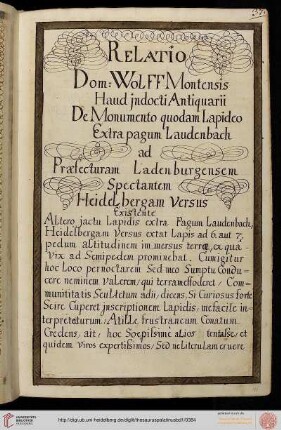 RELATIO
Dom: WOLFF Montensis
Haud jndocti Antiquarii
De Monumento quodam Lapideo
Extra pagum Laudenbach
ad
Præfecturam Ladenburgensem
Spectantem
Heidelbergam Versus
Existente
Altero jactu Lapidis extra Pagum Laudenbach,
Heidelbergam Versus extat Lapis ad 6 aut 7,
pedum altitudinem immersus terræ, ex qua
Vix ad Semipedem prominebat. Cumigitur
hoc Loco pernoctarem Sed meo Sumptu Condu-
cere neminem Valerem, qui terram effoderet, Com-
munitatis Scultetum adii, dicens, Si Curiosus forte
Scire Cuperet jnscriptionem Lapidis, me facile in-
terpretaturum, At ille frustraneum Conatum
Credens, ait, hoc Soepissime alios tentasse, et
quidem Viros expertissimos, Sed ne literulam eruere
http://digi.ub.uni-heidelberg.de/diglit/thesauruspalatinusbd1/0084